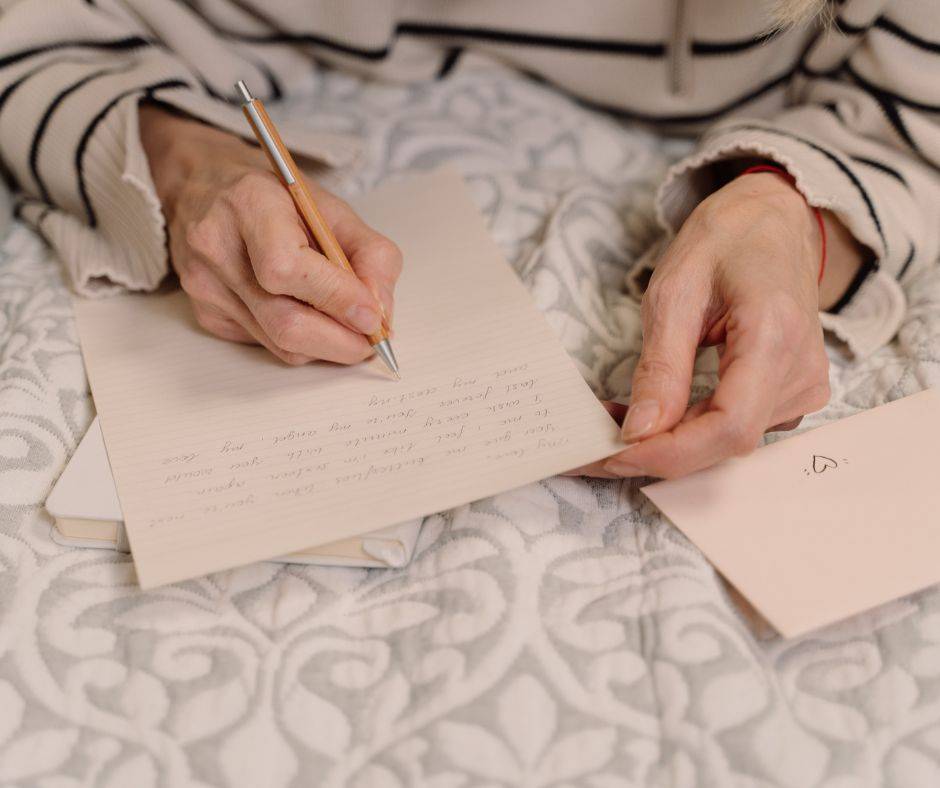 My love,
you give me butterflies. When you're next
to me, i feel like i'm again
I wish every minute with you would
last forever. You're my angel, my love
and my destiny